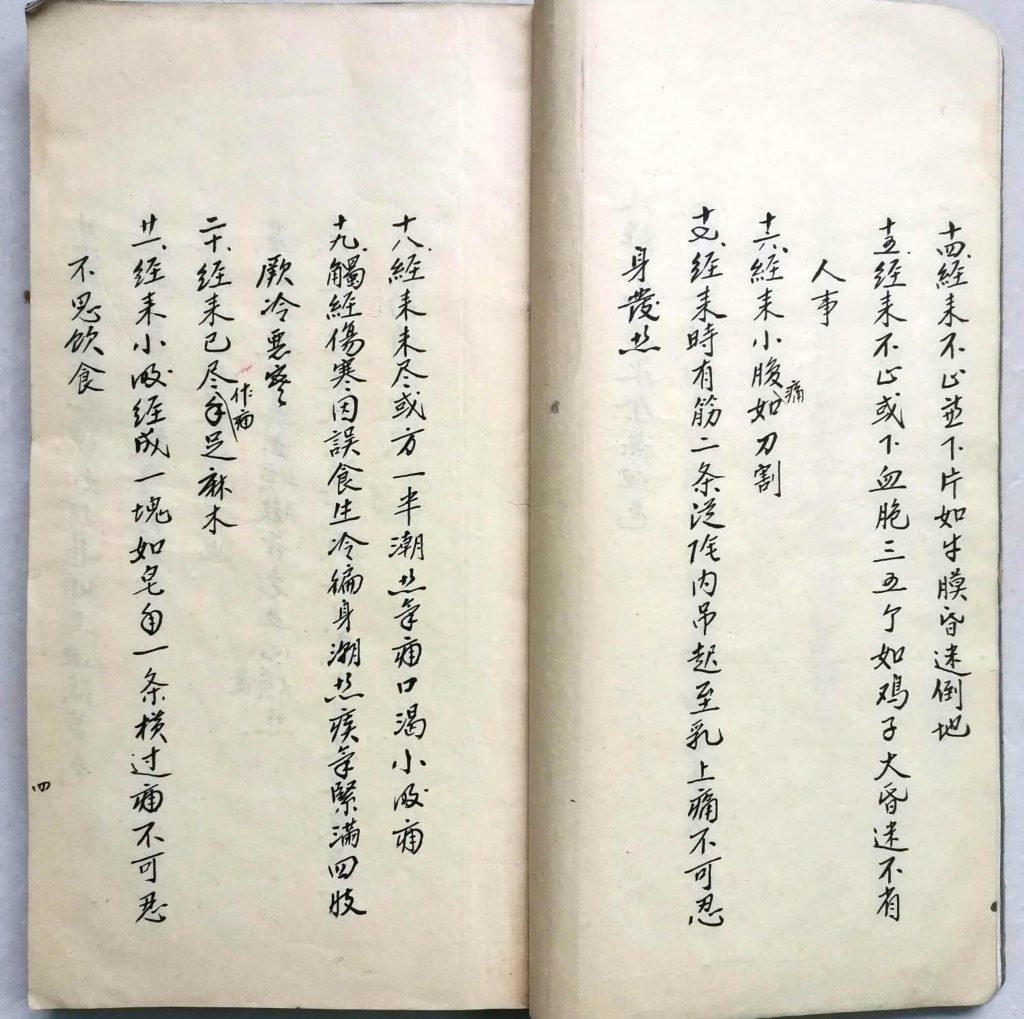 十四、經来不止並下片如牛膜昏迷倒地
十五、經来不止或下血胞三五个如鸡子大昏迷不省
人事
十六、經来小腹痛如刀割
十七、經来時有筋二条從阴内吊起至乳上痛不可忍
身發热
十八、經来未尽或方一半潮热氣痛口渴小腹痛
十九、觸經傷寒因誤食生冷徧身潮热痰氣緊滿四肢
厥冷惡寒
二十、經来已尽作痛手足麻木
廿一、經来小腹經成一塊如皂角一条横过痛不可忍
不思飲食
四